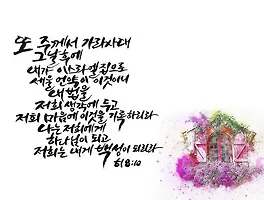 또 주께서 가라사대
그날후에
내가 이스라엘 집으로
세울 언약이 이것이니
내 법을
저희 생각에 두고
저희 마음에 이것을 기록하리라
나는 저희에게
하나님이 되고
저희는 내게 백성이 되리라
히8:10